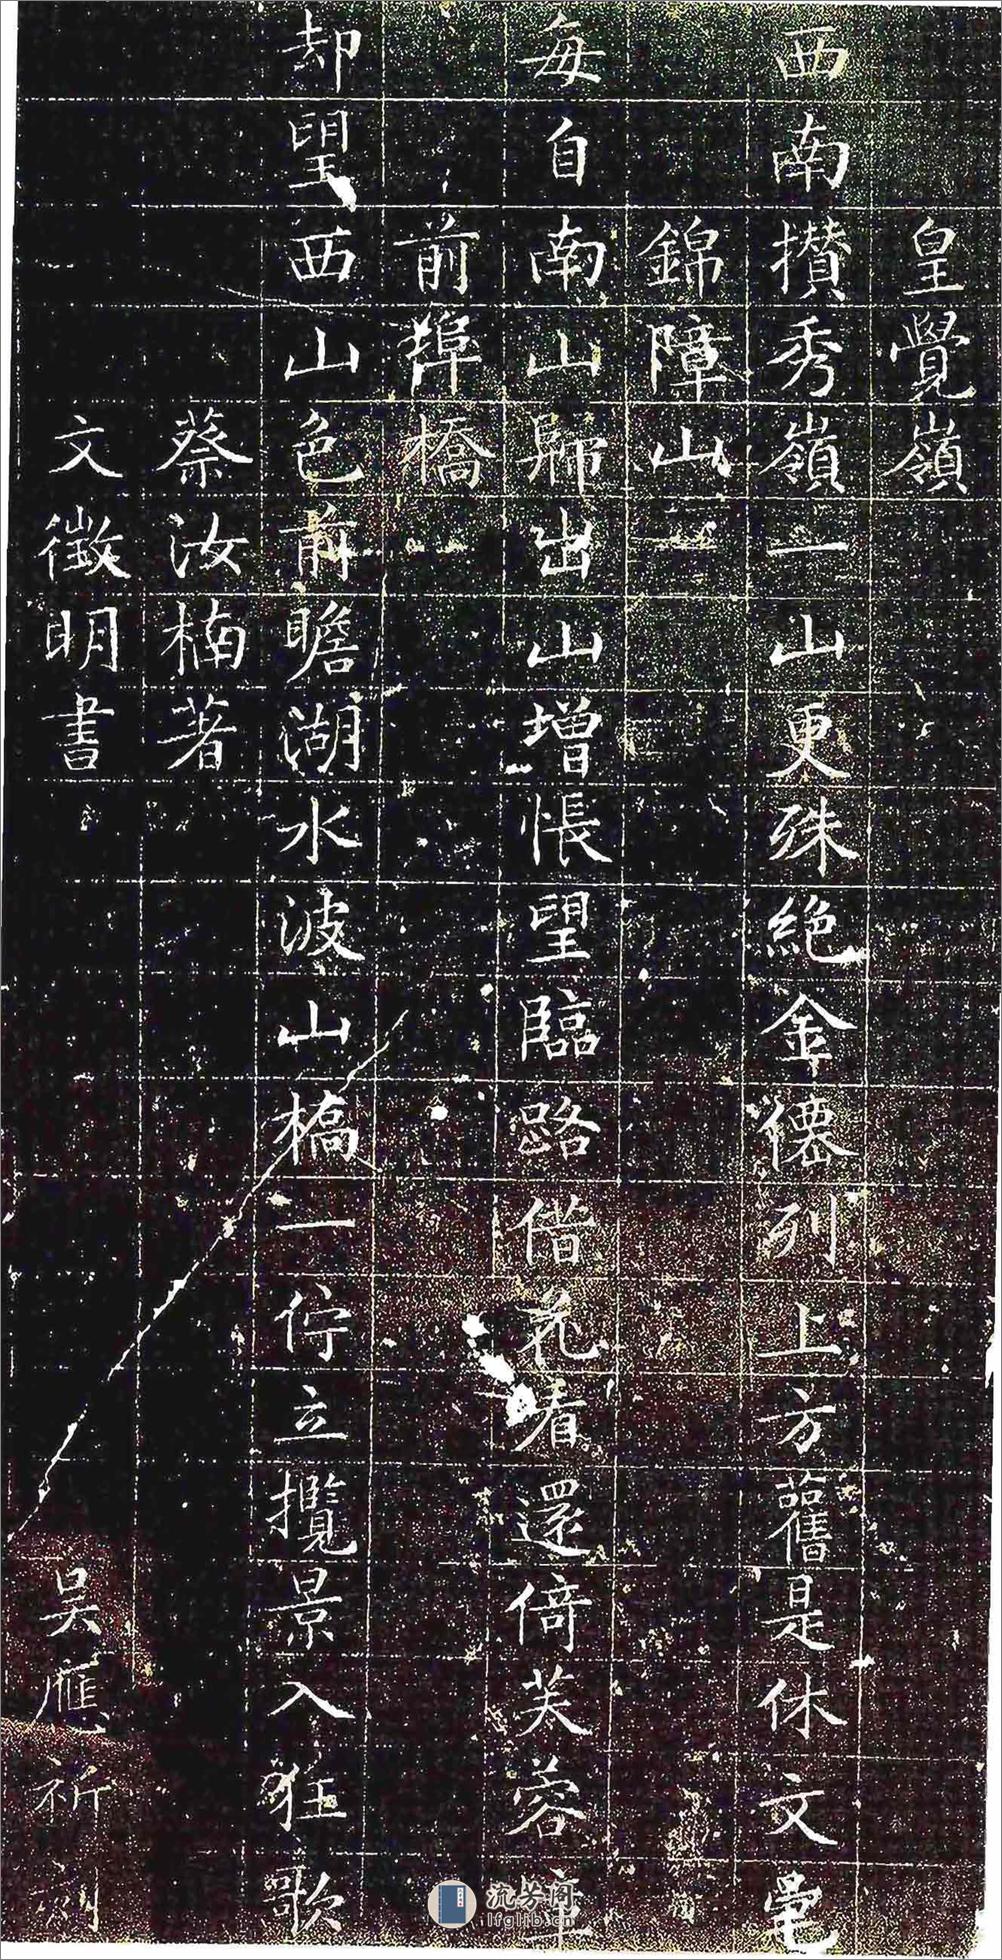 皇覺嶺
西南攅秀嶺一山更殊絶金僊列上方舊是休文宅
錦障山
每自南山歸出山增悵望臨路借花看還倚芙蓉障
前埠橋
却望西山色前瞻湖水波山橋一佇立攬景入狂歌
蔡汝楠著
文徵明書
吳應祈刻
流芳阁
lfglib.cn